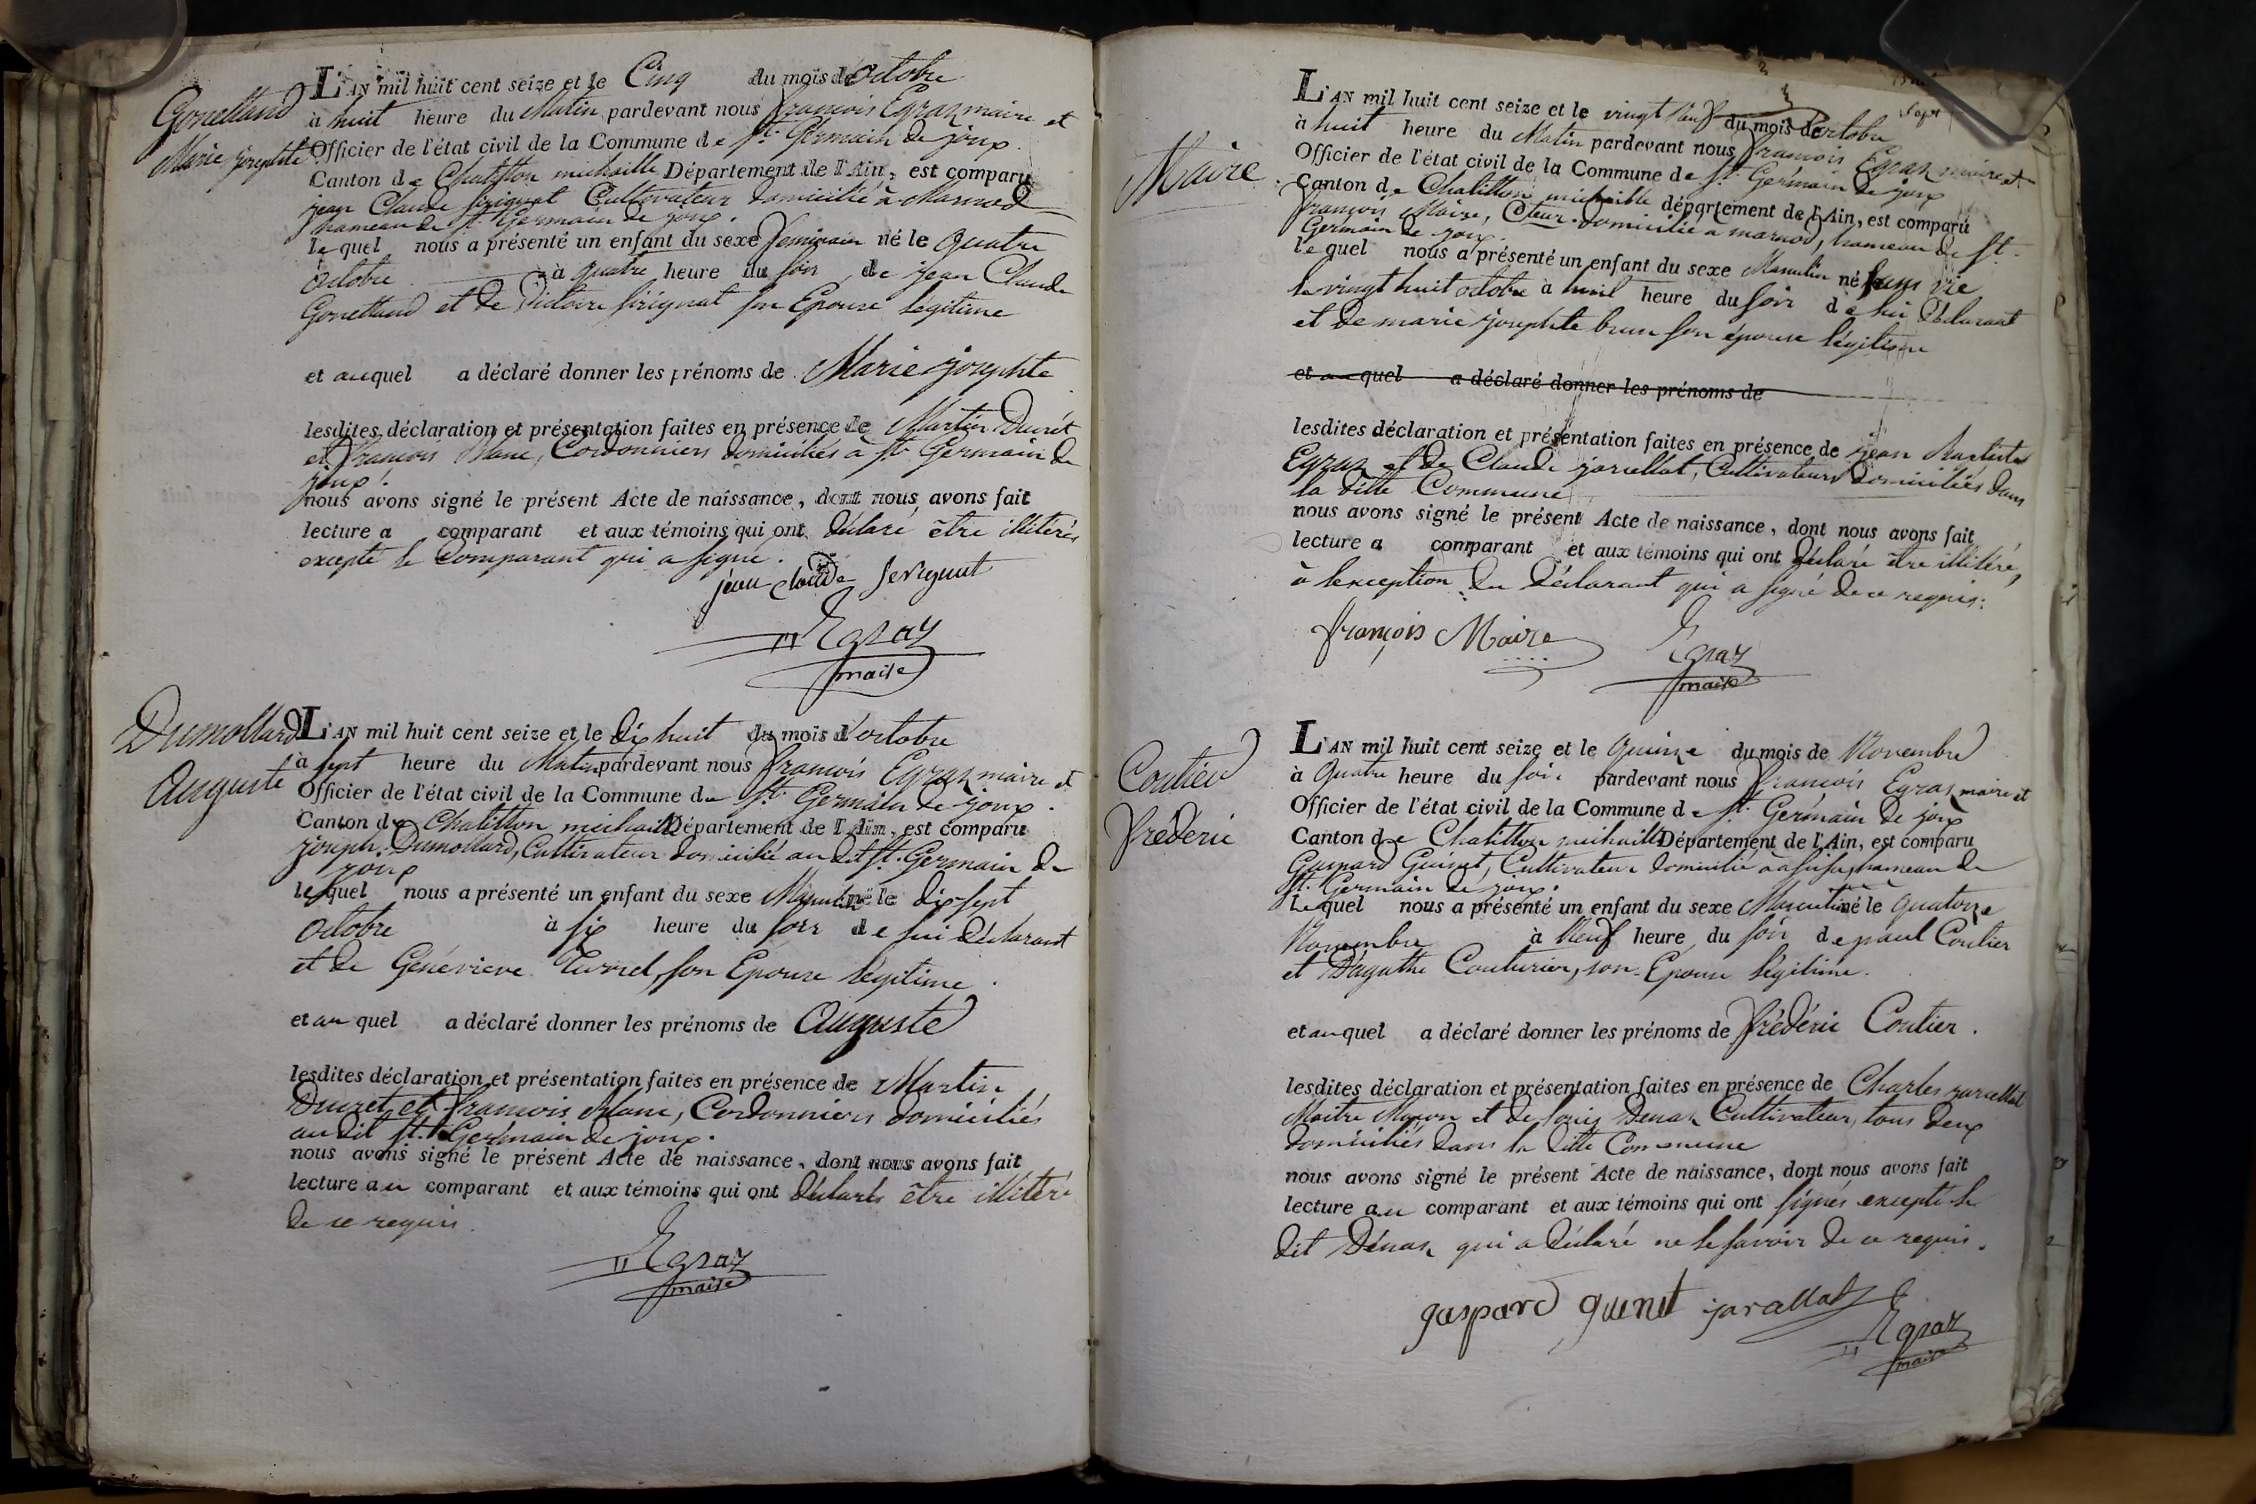 Gonettand
Marie josephte
L'AN mil huit cent seize et le Cinq du mois d'octobre
à huit heure du Matin pardevant nous françois Egraz maire et
Officier de l'état civil de la Commune de St. Germain de joux.
Canton de Chatillon michaille Département de l'Ain, est comparu
jean Claude Cultivateur domicilié à Marnod
hameau de St. Germain de joux.
lequel nous a présenté un enfant du sexe feminin né le quatre
octobre à quatre heure du soir de jean Claude
Gonettand et de Victoire son Epouse légitime
et auquel a déclaré donner les prénoms de Marie josephte
lesdites déclaration et présentation faites en présence de Martin Ducret
et françois Blanc, Cordonniers domiciliés à St. Germain de
joux.
nous avons signé le présent Acte de naissance, dont nous avons fait
lecture a comparant et aux témoins qui ont déclaré être illitérés
excepté le Comparant qui a signé.
jean claude
Egraz
maire
Dumollard
Auguste
L'AN mil huit cent seize et le dix huit du mois d'octobre
à sept heure du Matin pardevant nous françois Egraz maire et
Officier de l'état civil de la Commune de St. Germain de joux.
Canton de Chatillon michaille Département de l'Ain, est comparu
joseph Dumollard, Cultivateur domicilié au dit St. Germain de
joux
lequel nous a présenté un enfant du sexe Masculin né le dix sept
octobre à six heure du soir de lui déclarant
et de Généviéve son Epouse légitime.
et au quel a déclaré donner les prénoms de Auguste
lesdites déclaration et présentation faites en présence de Martin
Ducret et françois Blanc, Cordonniers domiciliés
au dit St. Germain de joux.
nous avons signé le présent Acte de naissance, dont nous avons fait
lecture au comparant et aux témoins qui ont déclarés être illitéré
de ce requis.
Egraz
maire
Maire
L'AN mil huit cent seize et le vingt neuf du mois de octobre
à huit heure du Matin pardevant nous françois Egraz maire et
Officier de l'état civil de la Commune de St. Germain de joux
Canton de Chatillon michaille département de l'Ain, est comparu
françois Maire, Cteur. domicilié à marnod, hameau de St.
Germain de joux.
lequel nous a présenté un enfant du sexe Masculin né sans vie
le vingt huit octobre à huit heure du soir de lui déclarant
et de marie josephte brun son épouse légitime
et au quel a déclaré donner les prénoms de
lesdites déclaration et présentation faites en présence de jean Baptiste
Egraz et de Claude jarcellat, Cultivateurs domiciliés dans
la ditte Commune
nous avons signé le présent Acte de naissance, dont nous avons fait
lecture a comparant et aux témoins qui ont déclaré être illitéré,
à l'exception du déclarant qui a signé de ce requis.
françois Maire
Egraz
maire
Coutier
frédéric
L'AN mil huit cent seize et le Quinze du mois de Novembre
à Quatre heure du soir pardevant nous françois Egraz maire et
Officier de l'état civil de la Commune de St. Germain de joux
Canton de Chatillon michaille Département de l'Ain, est comparu
Gaspard Guinet, Cultivateur domicilié à hameau de
St. Germain de joux.
Lequel nous a présenté un enfant du sexe Masculin né le quatorze
Novembre à Neuf heure du soir de paul Coutier
et D'agathe Couturier, son Epouse légitime.
et au quel a déclaré donner les prénoms de frédéric Coutier.
lesdites déclaration et présentation faites en présence de Charles jarcellat
Maitre Maçon et de Louis Cultivateur, tous deux
domiciliés dans la ditte Commune
nous avons signé le présent Acte de naissance, dont nous avons fait
lecture au comparant et aux témoins qui ont signés excepté le
dit qui a déclaré ne le savoir de ce requis.
gaspard guinet
Egraz
maire